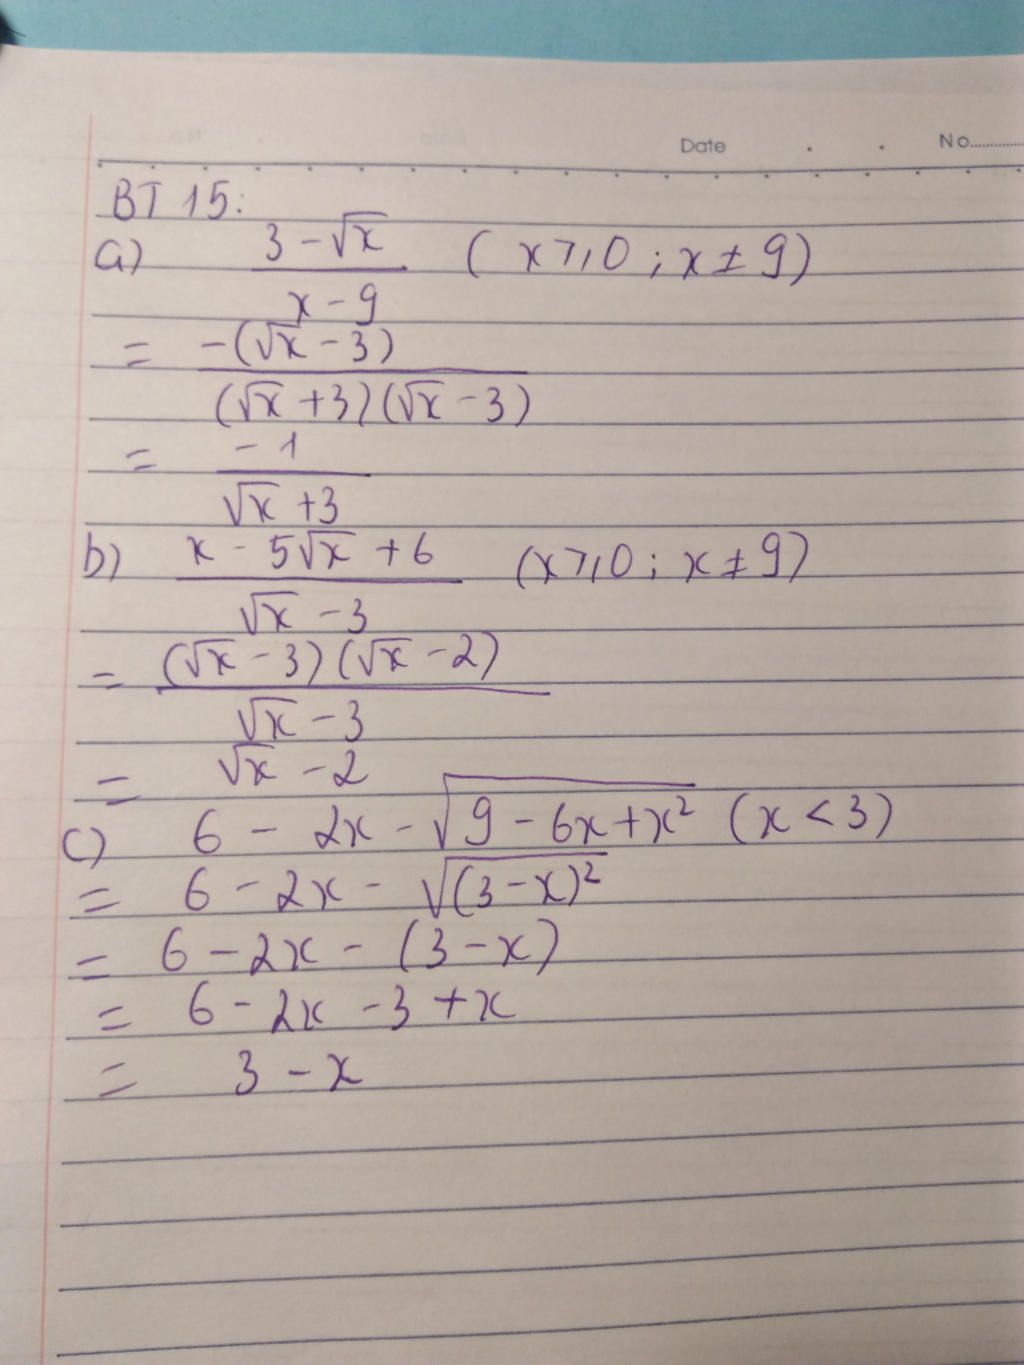 Date . . No.........
BT 15:
a) (3 - √x) / (x - 9) (x ≥ 0 ; x ≠ 9)
= -(√x - 3) / (√x + 3)(√x - 3)
= -1 / (√x + 3)
b) (x - 5√x + 6) / (√x - 3) (x ≥ 0 ; x ≠ 9)
= (√x - 3)(√x - 2) / (√x - 3)
= √x - 2
c) 6 - 2x - √(9 - 6x + x²) (x < 3)
= 6 - 2x - √((3 - x)²)
= 6 - 2x - (3 - x)
= 6 - 2x - 3 + x
= 3 - x